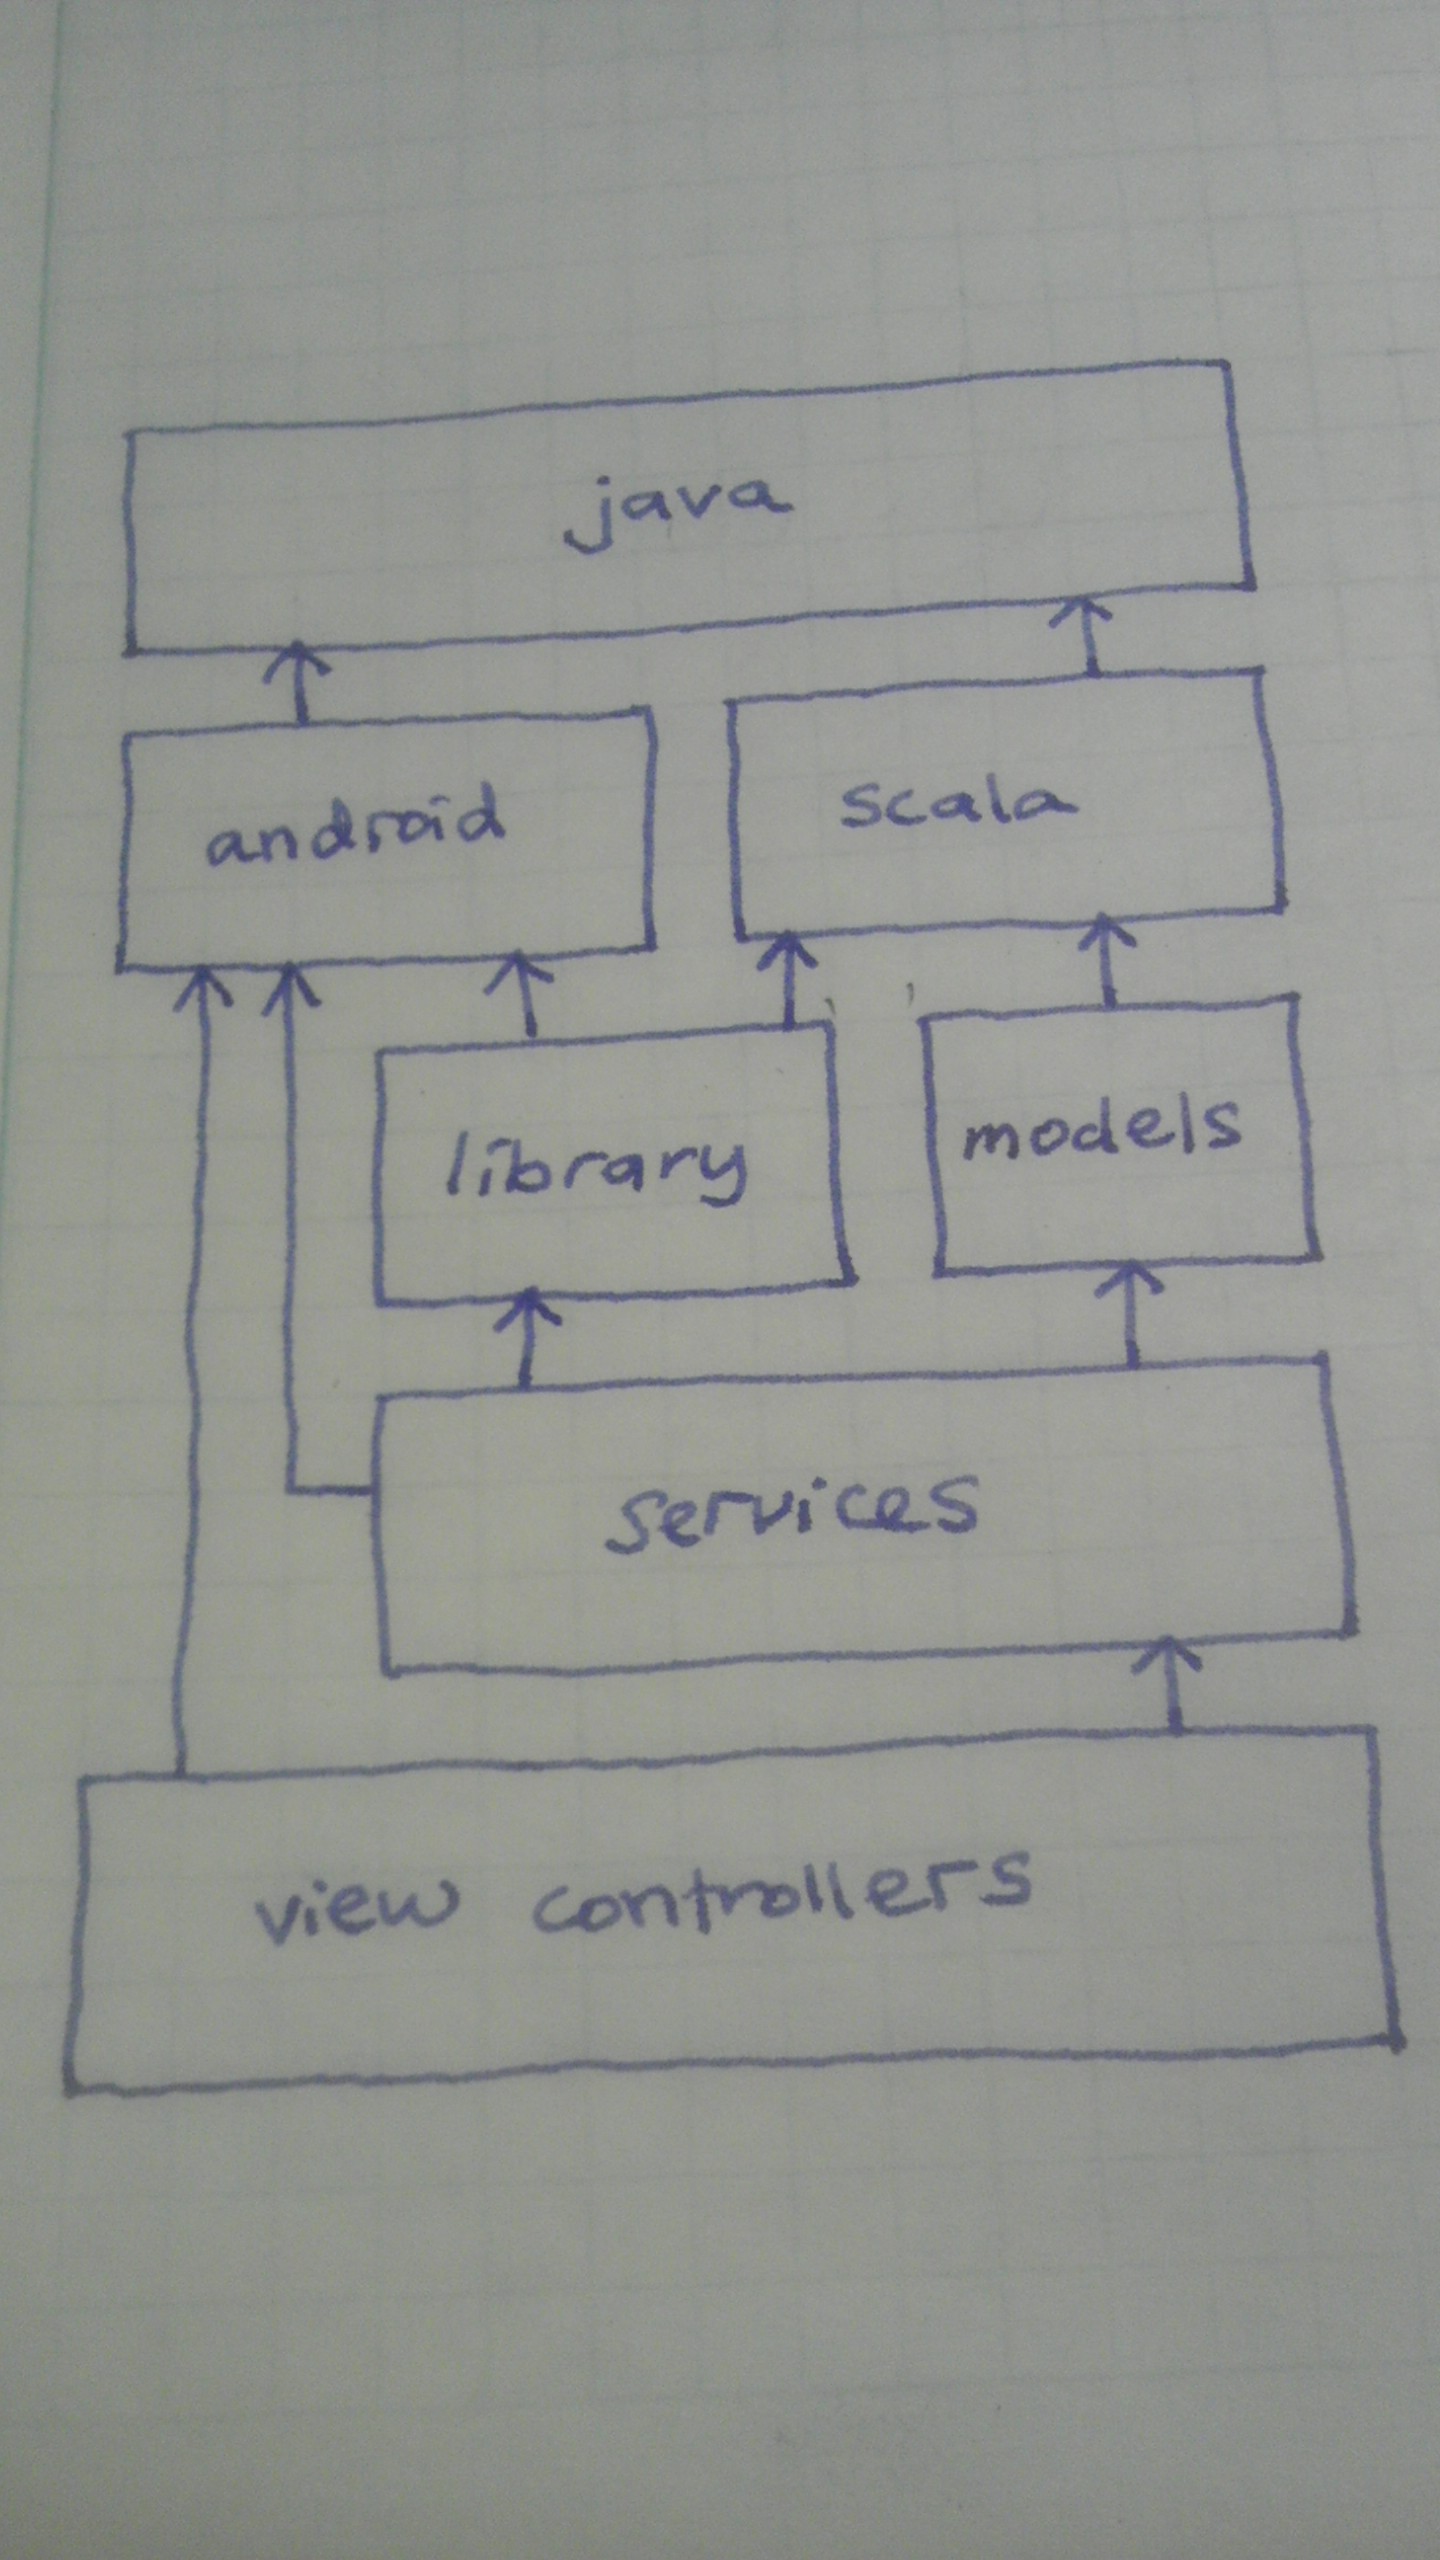 java
android
scala
library
models
services
view controllers